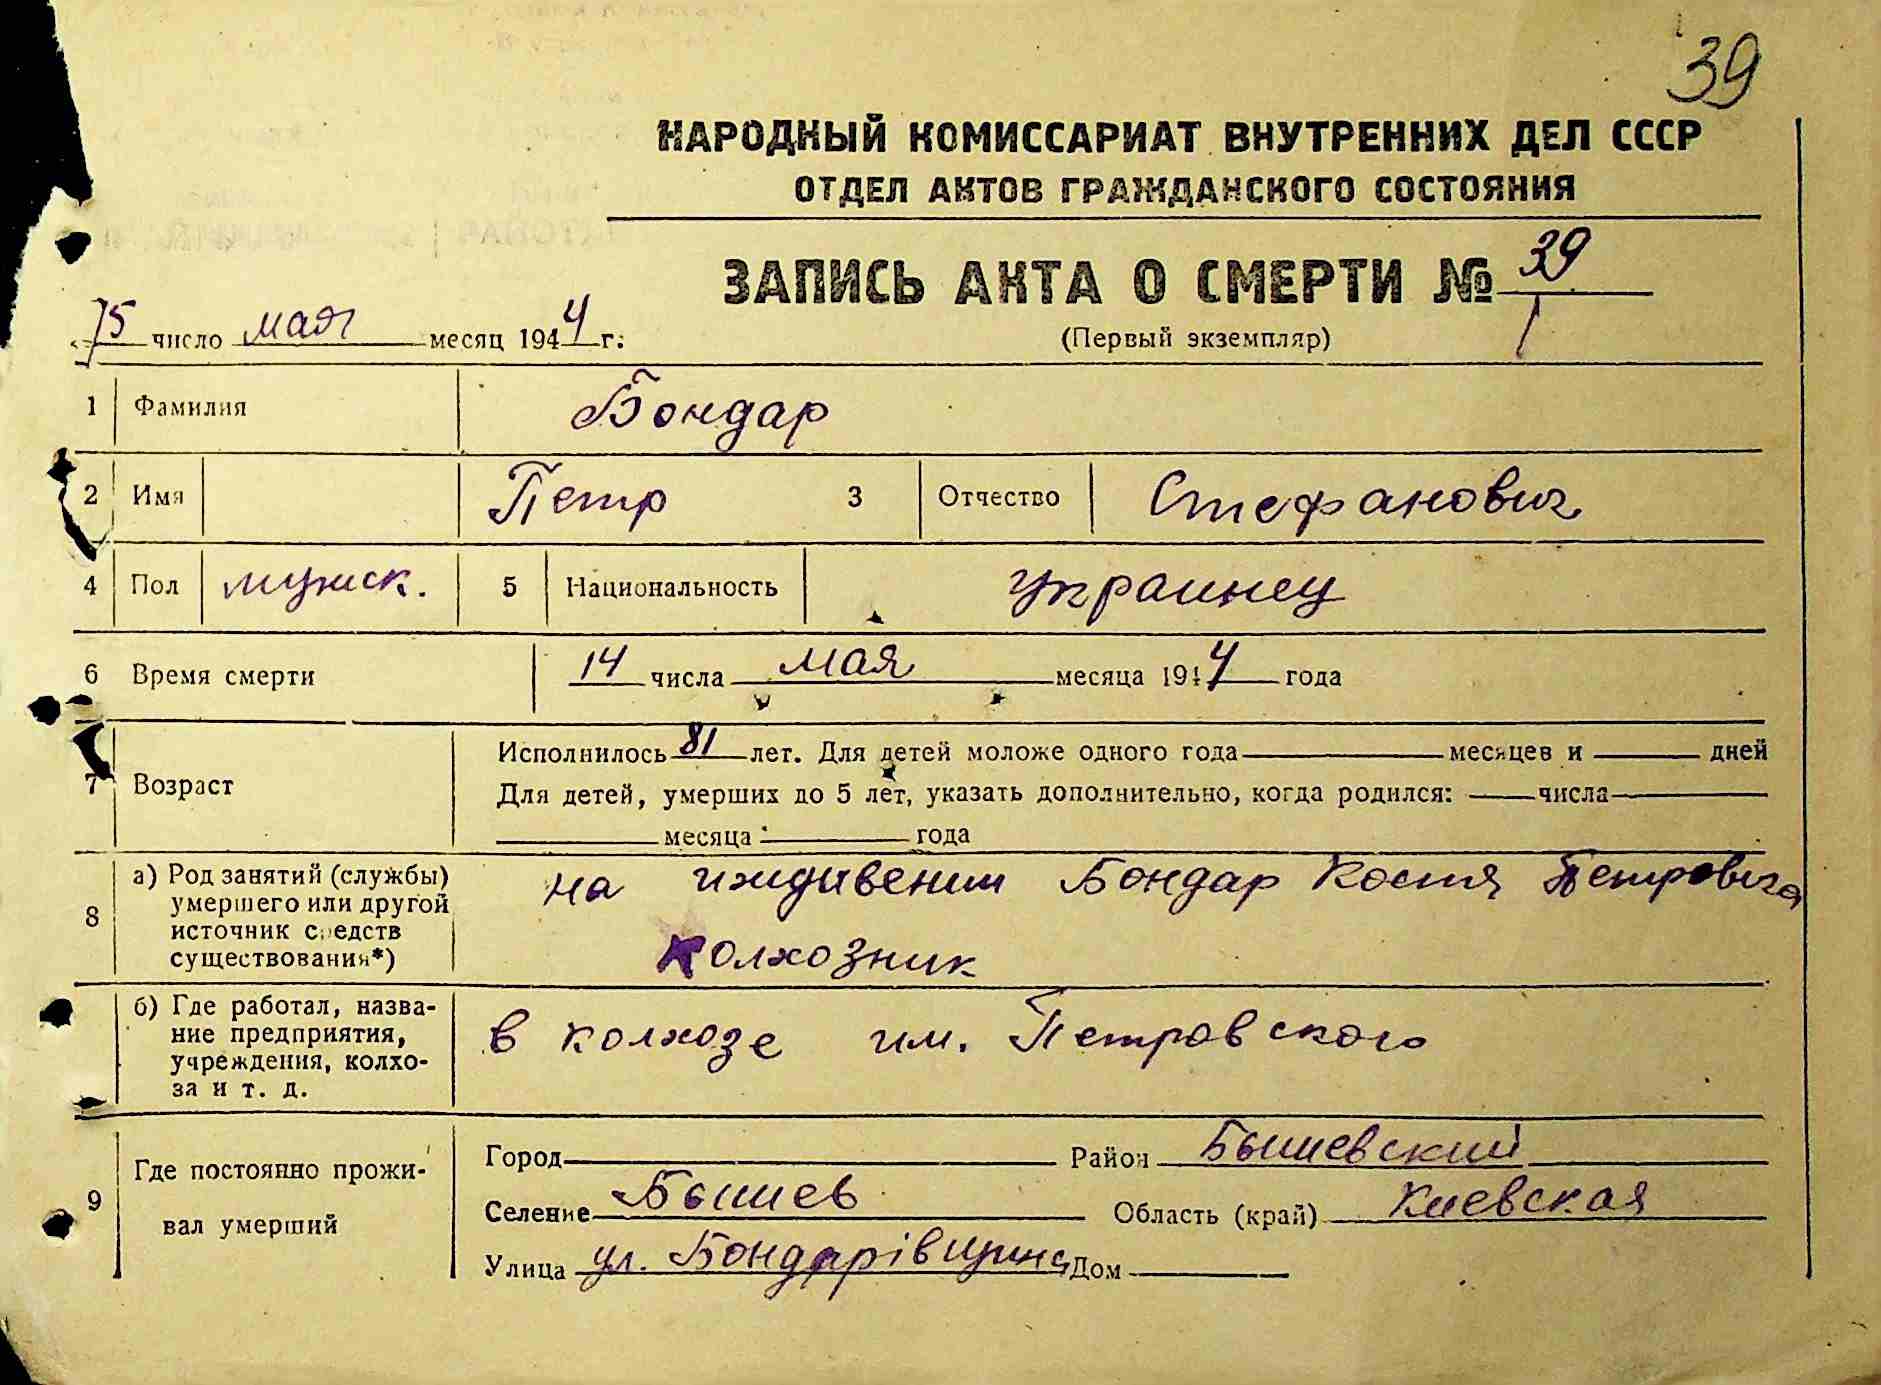 39
НАРОДНЫЙ КОМИССАРИАТ ВНУТРЕННИХ ДЕЛ СССР
ОТДЕЛ АКТОВ ГРАЖДАНСКОГО СОСТОЯНИЯ
ЗАПИСЬ АКТА О СМЕРТИ № 39
15 число мая месяц 1944 г.
(Первый экземпляр)
1 Фамилия Бондар
2 Имя Петр 3 Отчество Стефанович
4 Пол мужск. 5 Национальность украинец
6 Время смерти 14 числа мая месяца 1944 года
7 Возраст Исполнилось 81 лет. Для детей моложе одного года месяцев и дней
Для детей, умерших до 5 лет, указать дополнительно, когда родился: числа
месяца года
8 а) Род занятий (службы) умершего или другой источник средств существования*) на иждивении Бондар Костя Петровича
колхозник
б) Где работал, название предприятия, учреждения, колхоза и т. д. в колхозе им. Петровского
9 Где постоянно проживал умерший
Город Район Бышевский
Селение Бышев Область (край) Киевская
Улица ул. Бондарівщина Дом